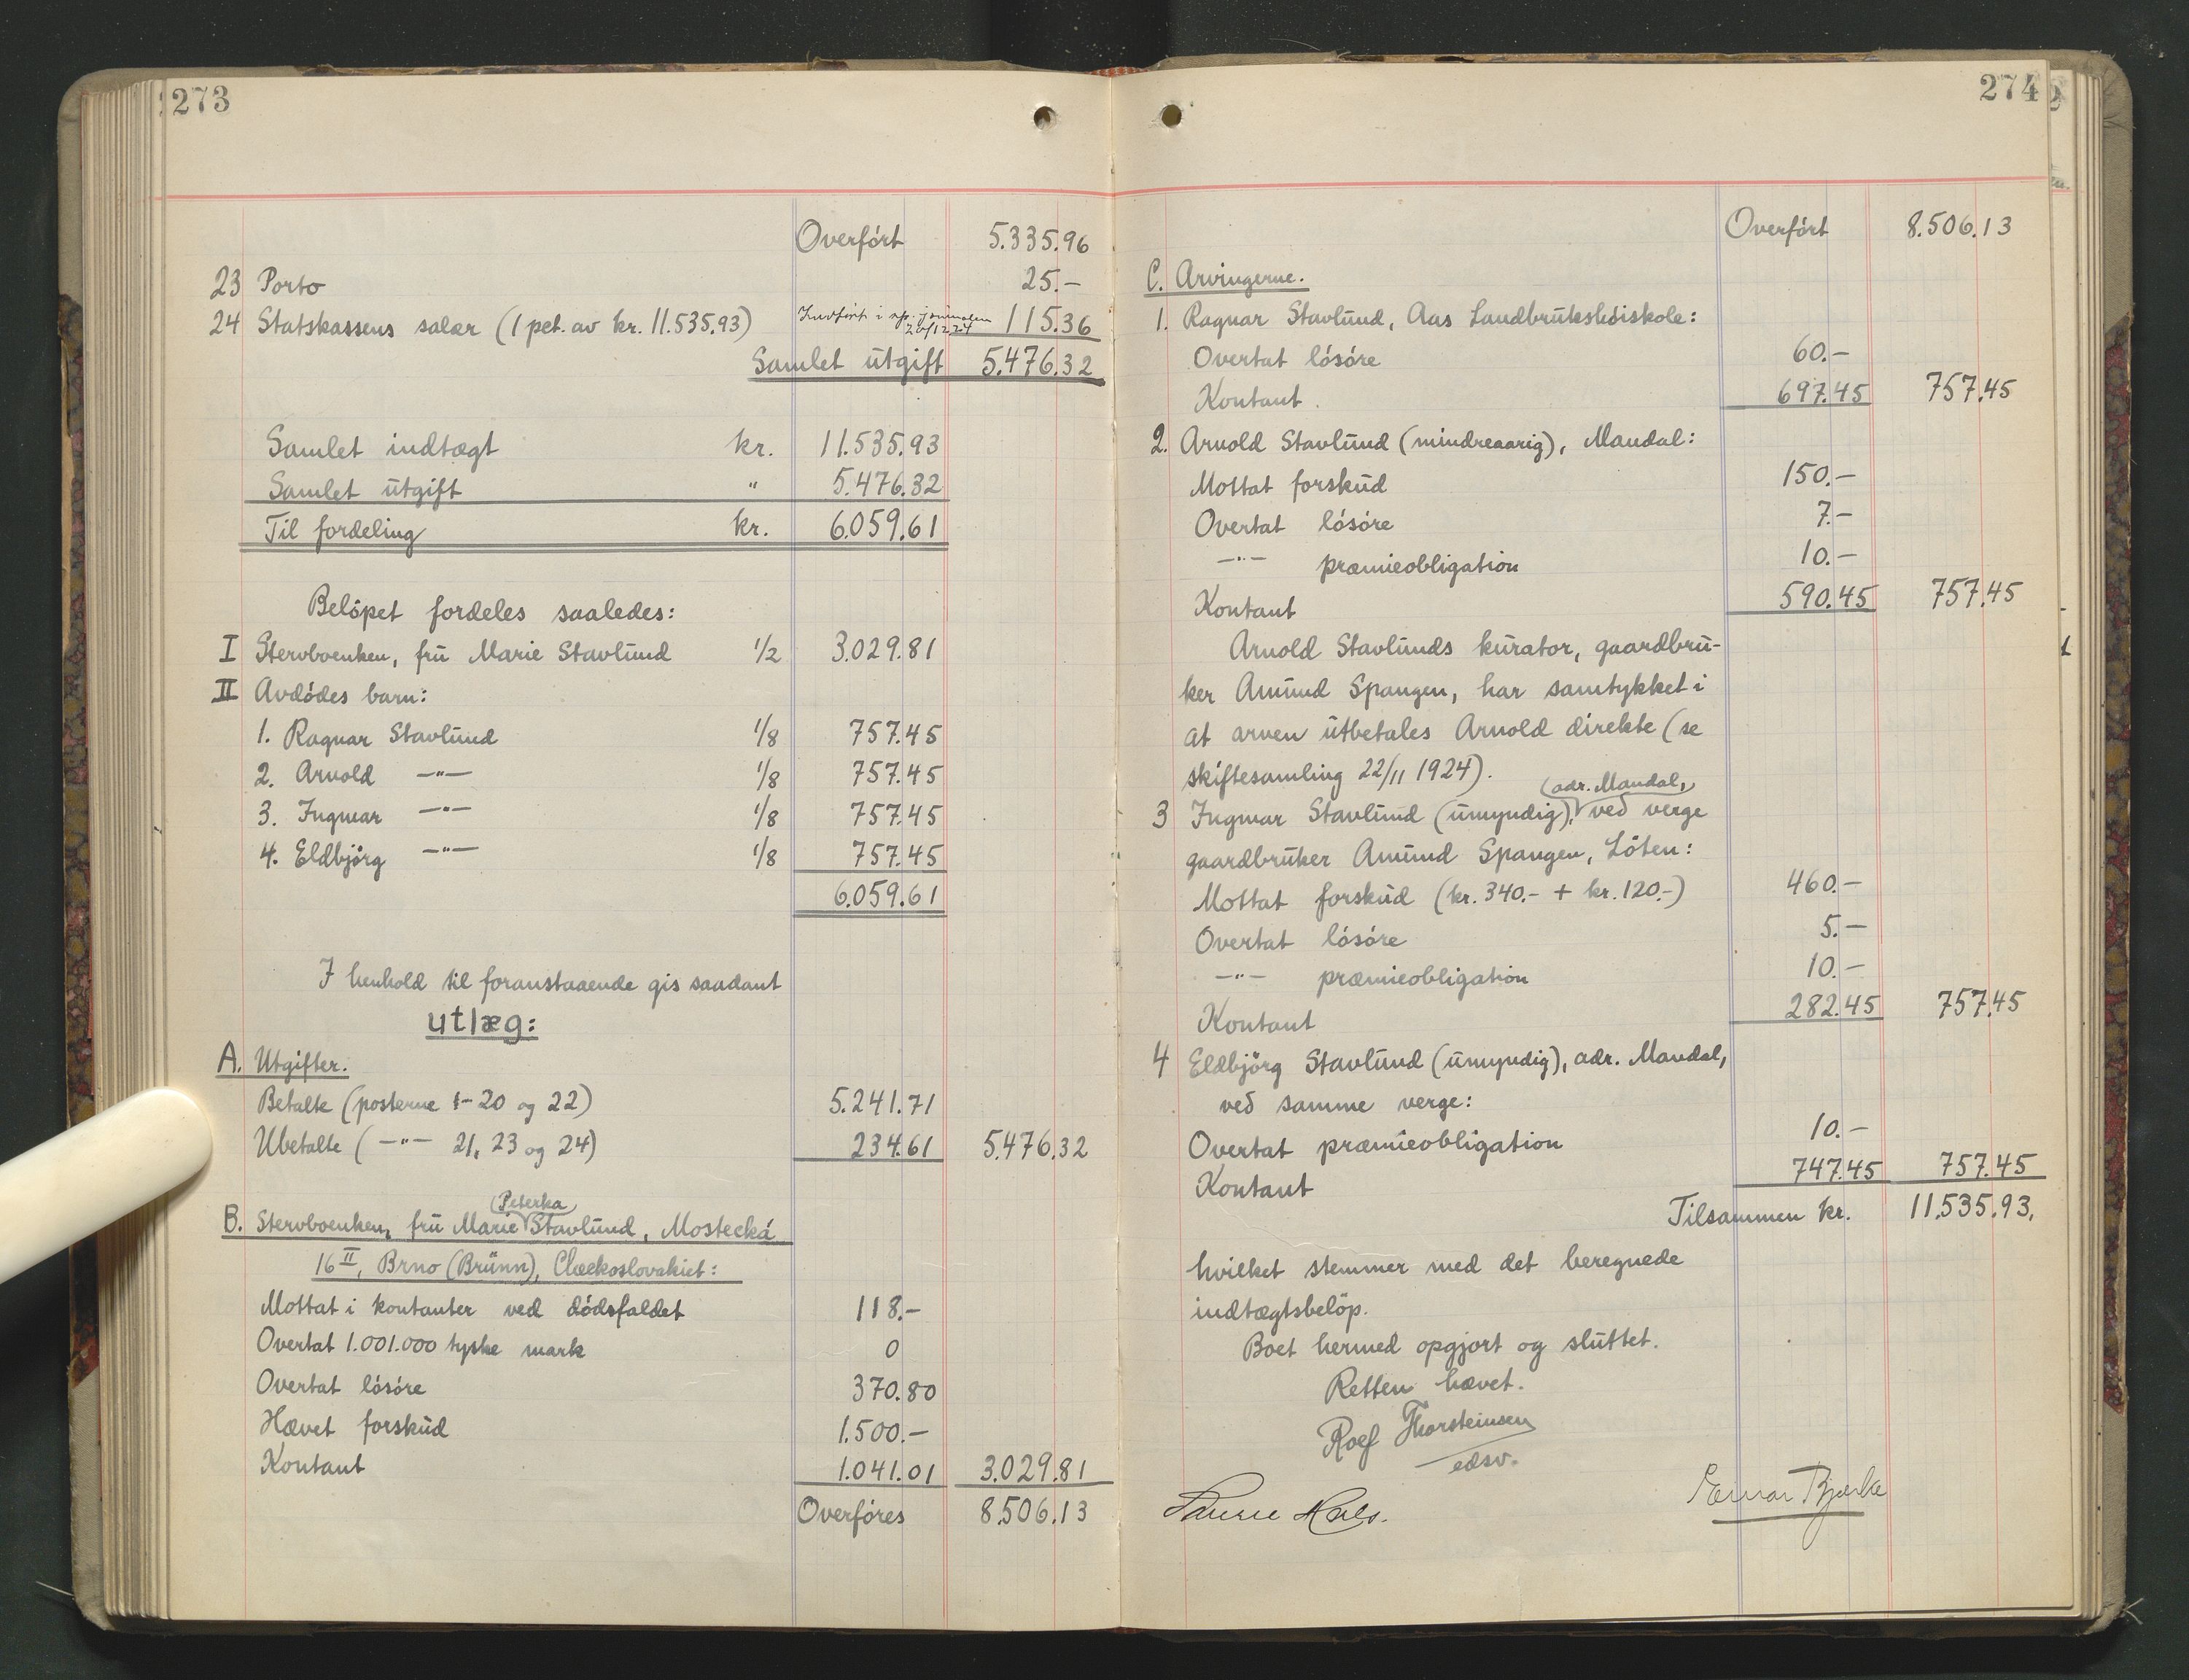 273
Overført 5.335.96
23 Porto 25.-
24 Statskassens salær (1 pct. av kr. 11.535.93) Indført i sp. journalen 20/12 24 115.36
Samlet utgift 5.476.32
Samlet indtægt kr. 11.535.93
Samlet utgift " 5.476.32
Til fordeling kr. 6.059.61
Beløpet fordeles saaledes:
I Stervboenken, fru Marie Stavlund 1/2 3.029.81
II Avdødes barn:
1. Ragnar Stavlund 1/8 757.45
2. Arvold —"— 1/8 757.45
3. Ingmar —"— 1/8 757.45
4. Eldbjørg —"— 1/8 757.45
6.059.61
I henhold til foranstaaende gis saadant
utlæg:
A. Utgifter.
Betalte (posterne 1-20 og 22) 5.241.71
Ubetalte (—"— 21, 23 og 24) 234.61 5.476.32
B. Stervboenken, fru Marie (Peterka) Stavlund, Mostecká
16 II, Brno (Brünn), Checkoslovakiet:
Mottat i kontanter ved dødsfaldet 118.-
Overtat 1.001.000 tyske mark 0
Overtat løsøre 370.80
Hævet forskud 1.500.-
Kontant 1.041.01 3.029.81
Overføres 8.506.13
274
Overført 8.506.13
C. Arvingerne.
1. Ragnar Stavlund, Aas Landbrukshøiskole:
Overtat løsøre 60.-
Kontant. 697.45 757.45
2. Arnold Stavlund (mindreaarig), Mandal:
Mottat forskud 150.-
Overtat løsøre 7.-
—"— præmieobligation 10.-
Kontant 590.45 757.45
Arnold Stavlunds kurator, gaardbru-
ker Amund Spangen, har samtykket i
at arven utbetales Arnold direkte (se
skiftesamling 22/11 1924).
3 Ingmar Stavlund (umyndig), (adr. Mandal,) ved verge
gaardbruker Amund Spangen, Löten:
Mottat forskud (kr. 340.- + kr. 120.-) 460.-
Overtat løsøre 5.-
—"— præmieobligation 10.-
Kontant 282.45 757.45
4 Eldbjörg Stavlund (umyndig), adr. Mandal,
ved samme verge:
Overtat præmieobligation 10.-
Kontant 747.45 757.45
Tilsammen kr. 11.535.93,
hvilket stemmer med det beregnede
indtægtsbeløp.
Boet hermed opgjort og sluttet.
Retten hævet.
Rolf Thorsteinsen
edsv.
Einar Bjerke